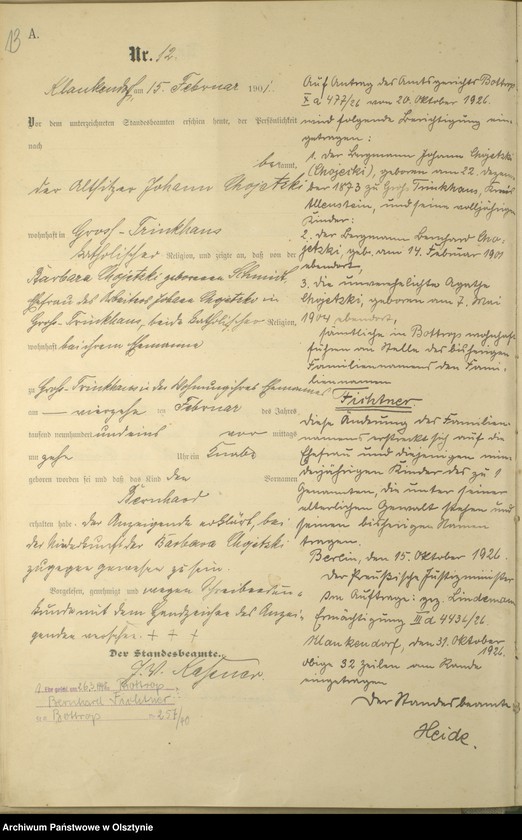 13
A.
Nr. 12.
Klaukendorf, am 15. Februar 1901.
Vor dem unterzeichneten Standesbeamten erschien heute, der Persönlichkeit
nach
bekannt,
der Altsitzer Johann Chojetzki
wohnhaft in Groß-Trinkhaus
katholischer Religion, und zeigte an, daß von der
Barbara Chojetzki geborenen Schmidt,
Ehefrau des Arbeiters Johann Chojetzki in
Groß-Trinkhaus, beide katholischer Religion,
wohnhaft bei ihrem Ehemanne
zu Groß-Trinkhaus in der Wohnung ihres Ehemannes
am — vierzehn ten Februar des Jahres
tausend neunhundert und eins vor mittags
um zehn Uhr ein Knabe
geboren worden sei und daß das Kind den Vornamen
Bernhard
erhalten habe. Der Anzeigende erklärt, bei
der Niederkunft der Barbara Chojetzki
zugegen gewesen zu sein.
Vorgelesen, genehmigt und wegen Schreibensun-
kunde mit dem Handzeichen des Anzei-
genden versehen. + + +
Der Standesbeamte.
J. V.
26.3.
Bottrop
Bernhard Fichtner
Bottrop 257/40
Auf Antrag des Amtsgerichts Bottrop
X a 477/26 vom 20. Oktober 1926.
wird folgende Berichtigung ein-
getragen:
1. der Bergmann Johann Chojetzki
(Chojecki), geboren am 22. Dezem-
ber 1873 zu Groß Trinkhaus, Kreis
Allenstein, und seine volljährigen
Kinder:
2. der Bergmann Bernhard Cho-
jetzki, geb. am 14. Februar 1901
ebendort,
3. die unverehelichte Agathe
Chojetzki, geboren am 7. Mai
1904 ebendort,
sämtliche in Bottrop wohnhaft
führen an Stelle des bisherigen
Familiennamens den Fami-
liennamen
Fichtner
diese Änderung des Familien-
namens erstreckt sich auf die
Ehefrau und diejenigen min-
derjährigen Kinder des zu 1
Genannten, die unter seiner
elterlichen Gewalt stehen und
seinen bisherigen Namen
tragen.
Berlin, den 15. Oktober 1926.
Der Preußische Justizminister
Im Auftrage: gez. Lindemann
Ermächtigung III d 4434/26.
Klaukendorf, den 31. Oktober
1926.
Obige 32 Zeilen am Rande
eingetragen
Der Standesbeamte
Heide.
Archiwum Państwowe w Olsztynie